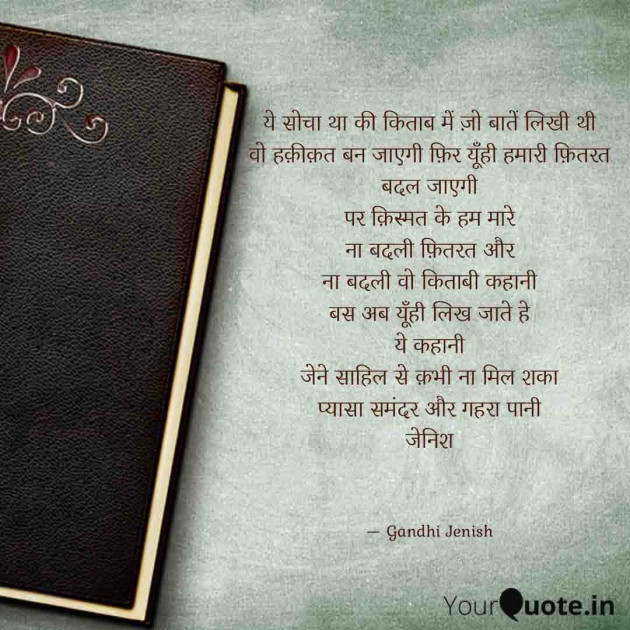 ये सोचा था की किताब में ज़ो बातें लिखी थी
वो हक़ीक़त बन जाएगी फ़िर यूँही हमारी फ़ितरत
बदल जाएगी
पर क़िस्मत के हम मारे
ना बदली फ़ितरत और
ना बदली वो किताबी कहानी
बस अब यूँही लिख जाते हे
ये कहानी
जेने साहिल से क़भी ना मिल शका
प्यासा समंदर और गहरा पानी
जेनिश
— Gandhi Jenish
YourQuote.in